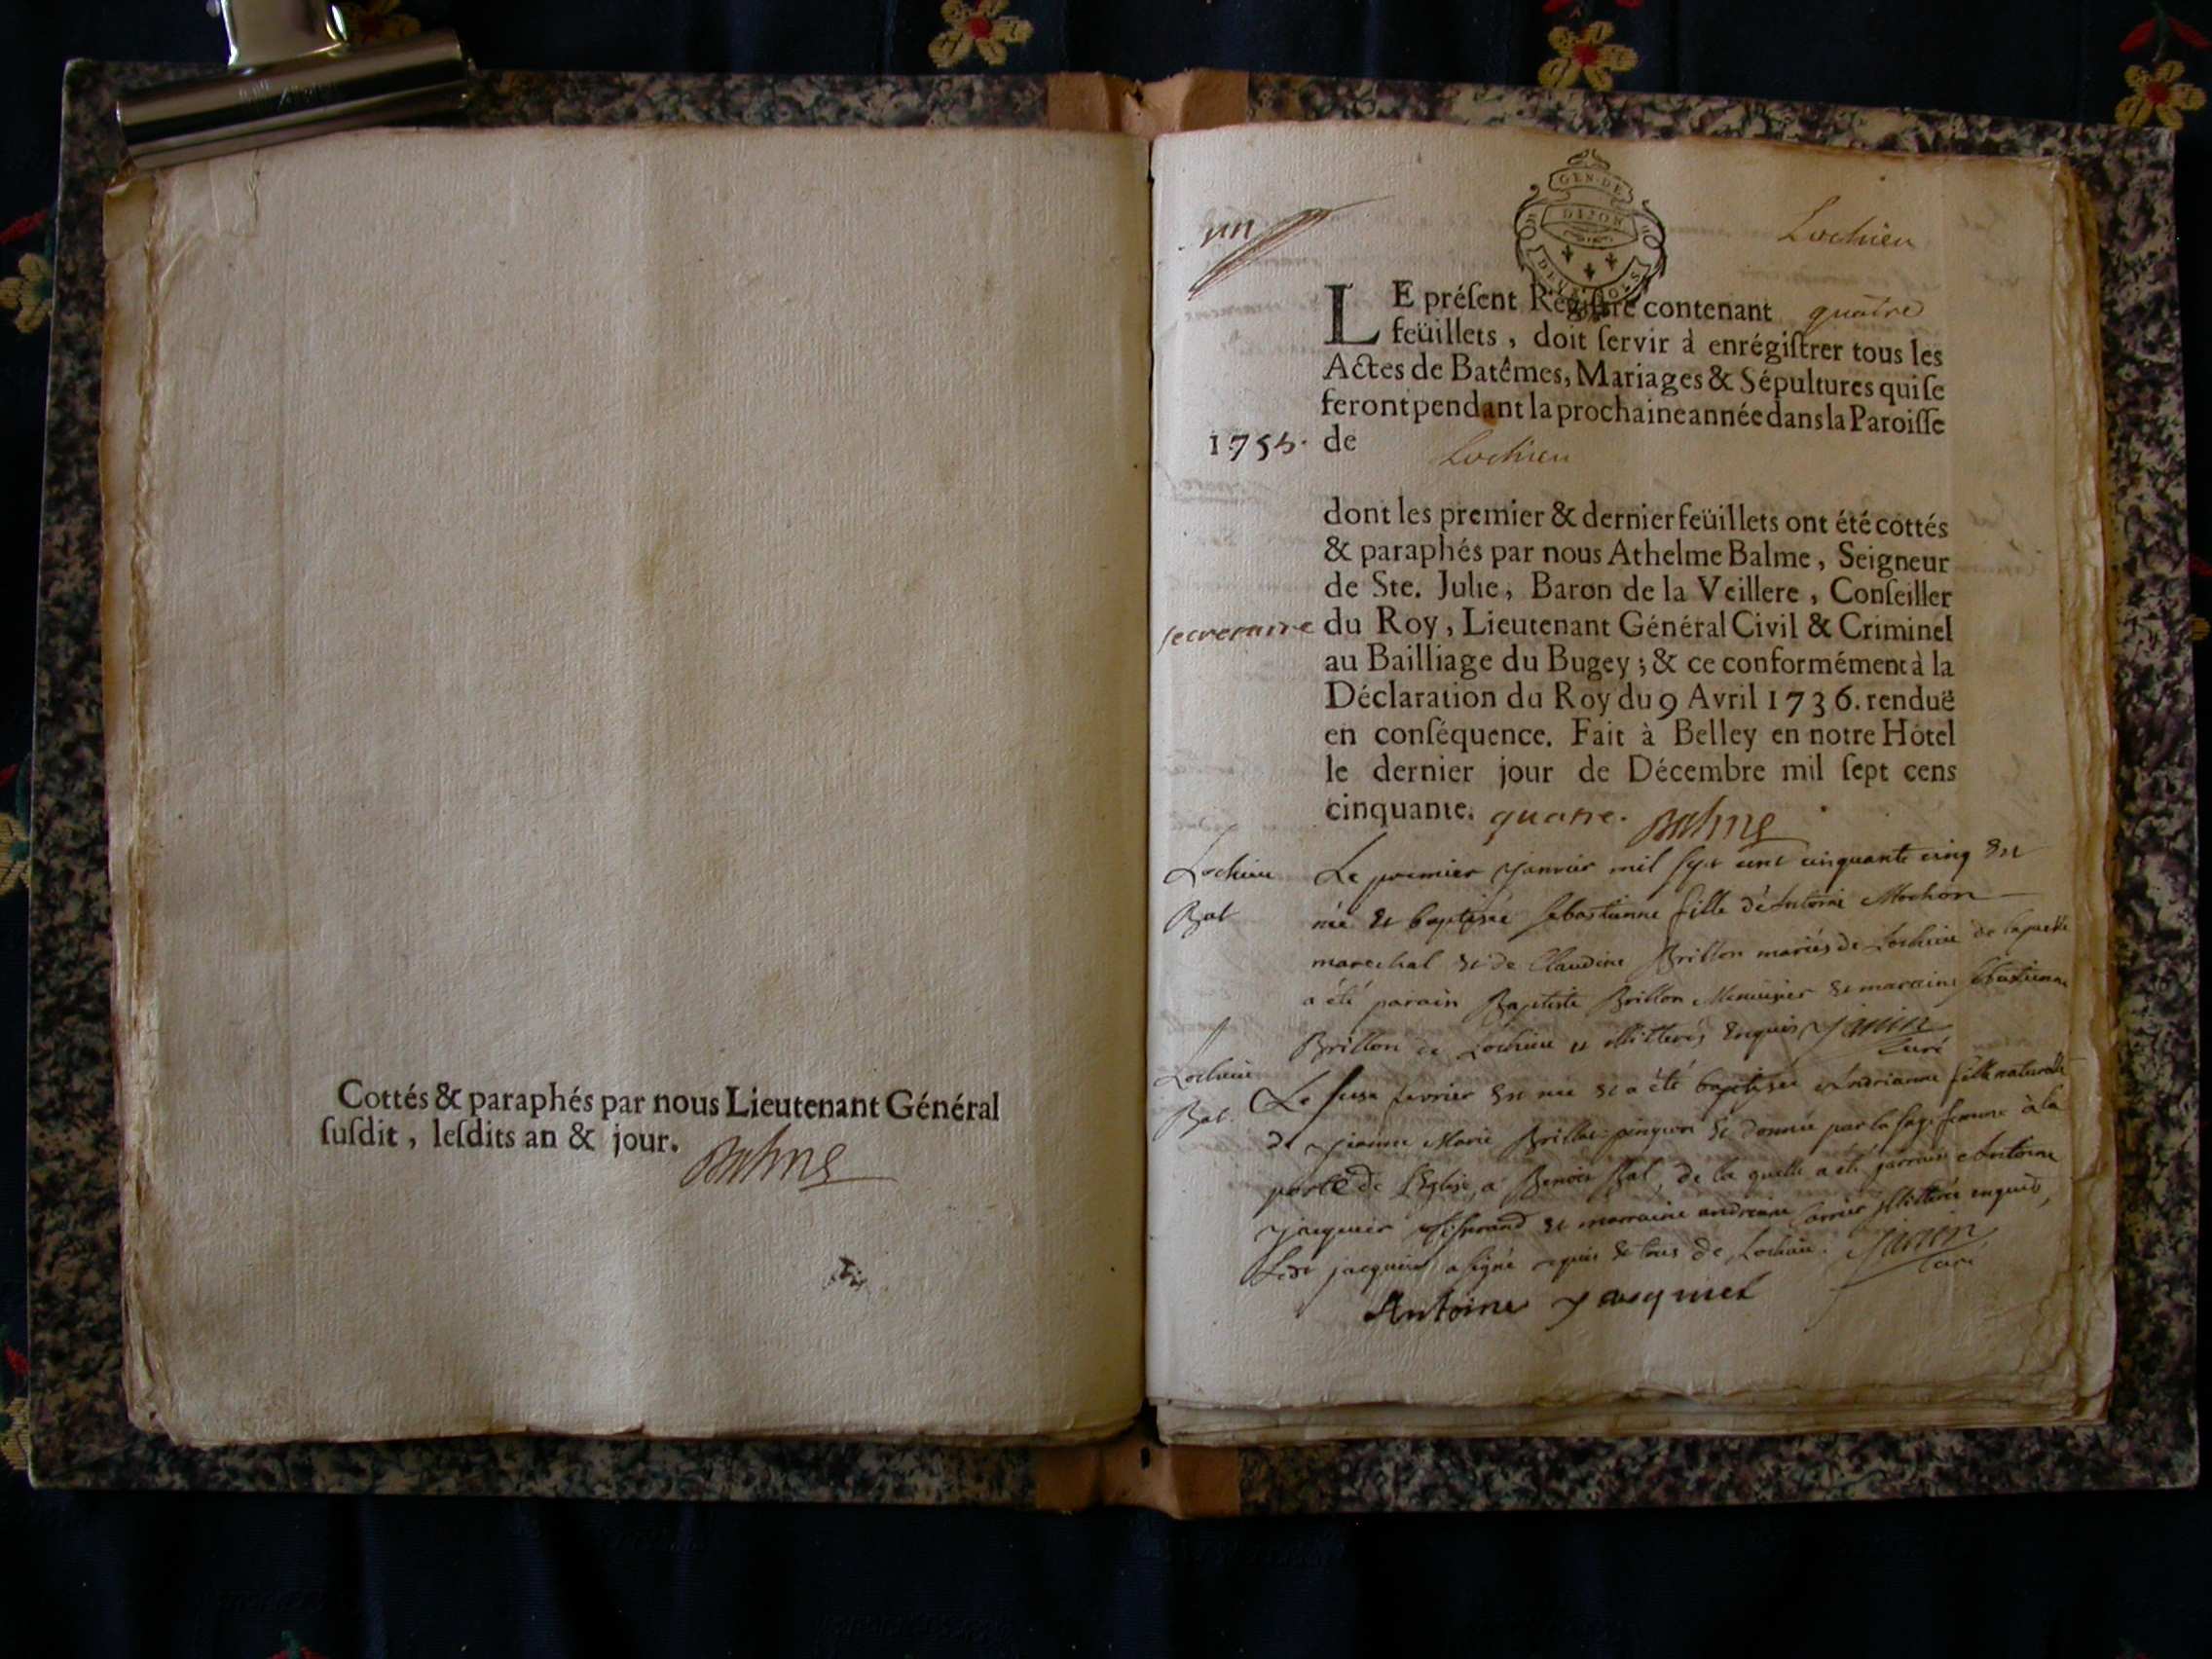 Cottés & paraphés par nous Lieutenant Général
ſuſdit, leſdits an & jour.
Balme
un
GEN. DE
DIJON
Lochieu
LE préſent Regiſtre contenant quatre
feüillets, doit ſervir à enrégiſtrer tous les
Actes de Batêmes, Mariages & Sépultures qui ſe
feront pendant la prochaine année dans la Paroiſſe
1755. de Lochieu
dont les premier & dernier feüillets ont été cottés
& paraphés par nous Athelme Balme, Seigneur
de Ste. Julie, Baron de la Veillere, Conſeiller
ſecretaire du Roy, Lieutenant Général Civil & Criminel
au Bailliage du Bugey; & ce conformément à la
Déclaration du Roy du 9 Avril 1736. renduë
en conſéquence. Fait à Belley en notre Hôtel
le dernier jour de Décembre mil ſept cens
cinquante. quatre. Balme
Lochieu Le premier janvier mil sept cent cinquante cinq est
Bat née et baptisée sebastienne fille d'Antoine Mochon
marechal et de Claudine Brillon mariés de Lochieu de laquelle
a été parain Baptiste Brillon Menuisier et maraine sebastienne
Brillon de Lochieu illitterés enquis Janin
curé
Lochieu
Bat. Le fevrier est née et a été baptisée Andrianne fille naturelle
de jeanne Marie Brillat et donnée par la sage femme à la
porte de l'Eglise, a Benoit Bal, de la quelle a été parrain Antoine
jacquier et marraine andrianne illitterée enquis,
Ledt jacquier a signé requis et tous de Lochieu. Janin
curé
Antoine jacquiet